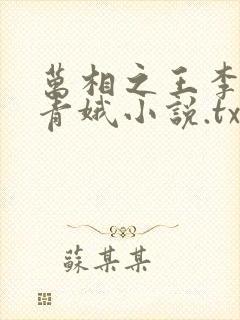 萬相之王李
青娥小說.tx
蘇某某